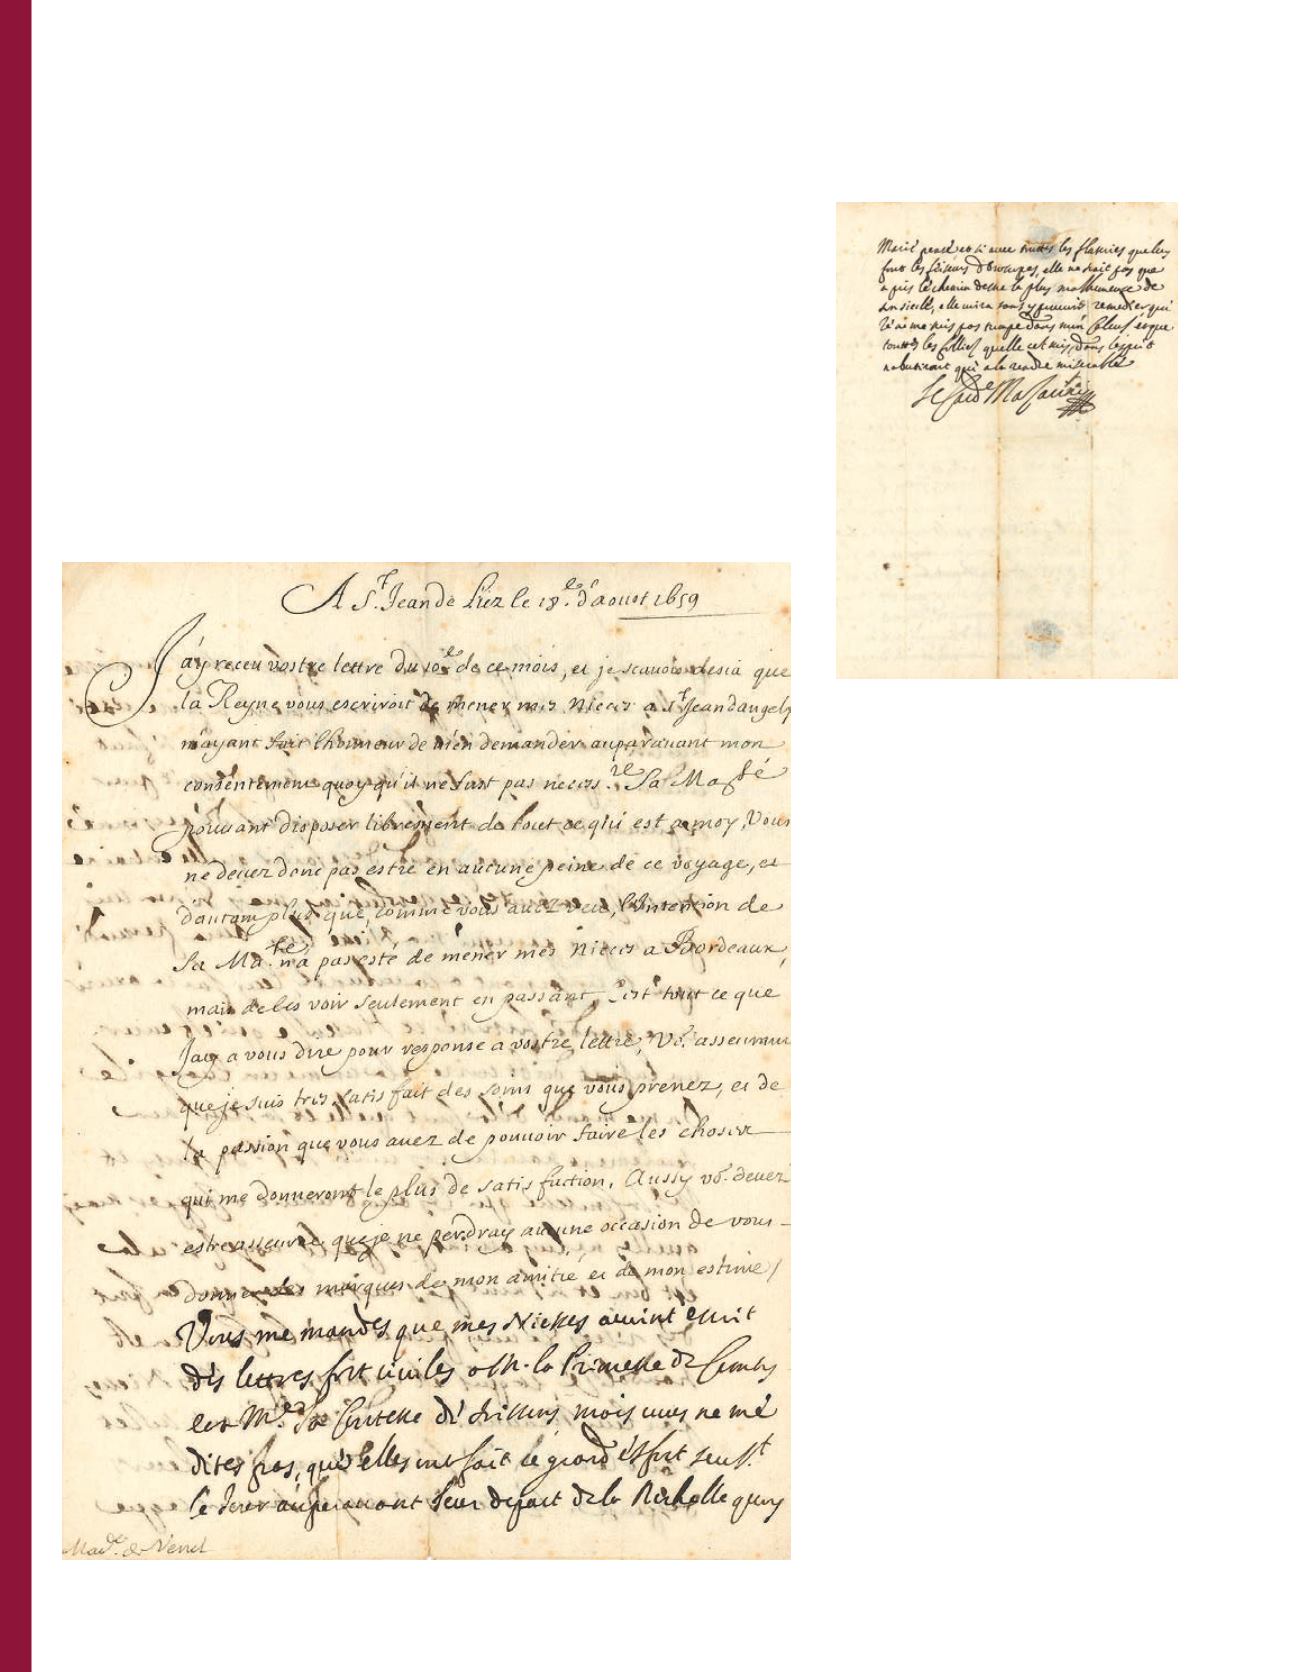 A S.t Jean de Luz le 18.e d'aoust 1659
J'ay receu vostre lettre du 10.e de ce mois, et je scavois desia que
la Reyne vous escriroit de mener mes Nieces a S.t Jean dangely
m'ayant fait lhonneur de m'en demander auparauant mon
consentement quoy qu'il ne fust pas necess.re Sa Ma.sté
pouuant disposer librement de tout ce qui est a moy, Vous
ne deuez donc pas estre en aucune peine de ce voyage, et
dautant plus que, comme vous auez veu, l'Intention de
Sa Ma.té n'a pas esté de mener mes Nieces a Bordeaux,
mais de les voir seulement en passant, C'est tout ce que
J'ay a vous dire pour response a vostre lettre, Vo.
que je suis tres satisfait des soins que vous prenez, et de
la passion que vous auez de pouuoir faire les choses
qui me donneront le plus de satisfaction, Aussy vo. deuez
estre asseurée que je ne perdray aucune occasion de vous
donner des marques de mon amitié et de mon estime /
Vous me mandes que mes Nieces escrit
des lettres fort ciuiles a M. la Princesse de
et M. la Contesse de mais vous ne me
dites pas, qu'elles ont fait ce grand
le auparauant leur depart de la Rochelle
Mad.e de Venel
Marie et si auec touttes les flateries que luy
font les d'horoscopes, elle ne pas que
a pris le chemin destre la plus malhureuse de
son siecle, elle sans y pouuoir remedier, que
Je ne me suis pas trompé dans mon et que
touttes les follies quelle cet mis dans lesprit
qu'a la rendre miserable
Le Card.e Mazarini